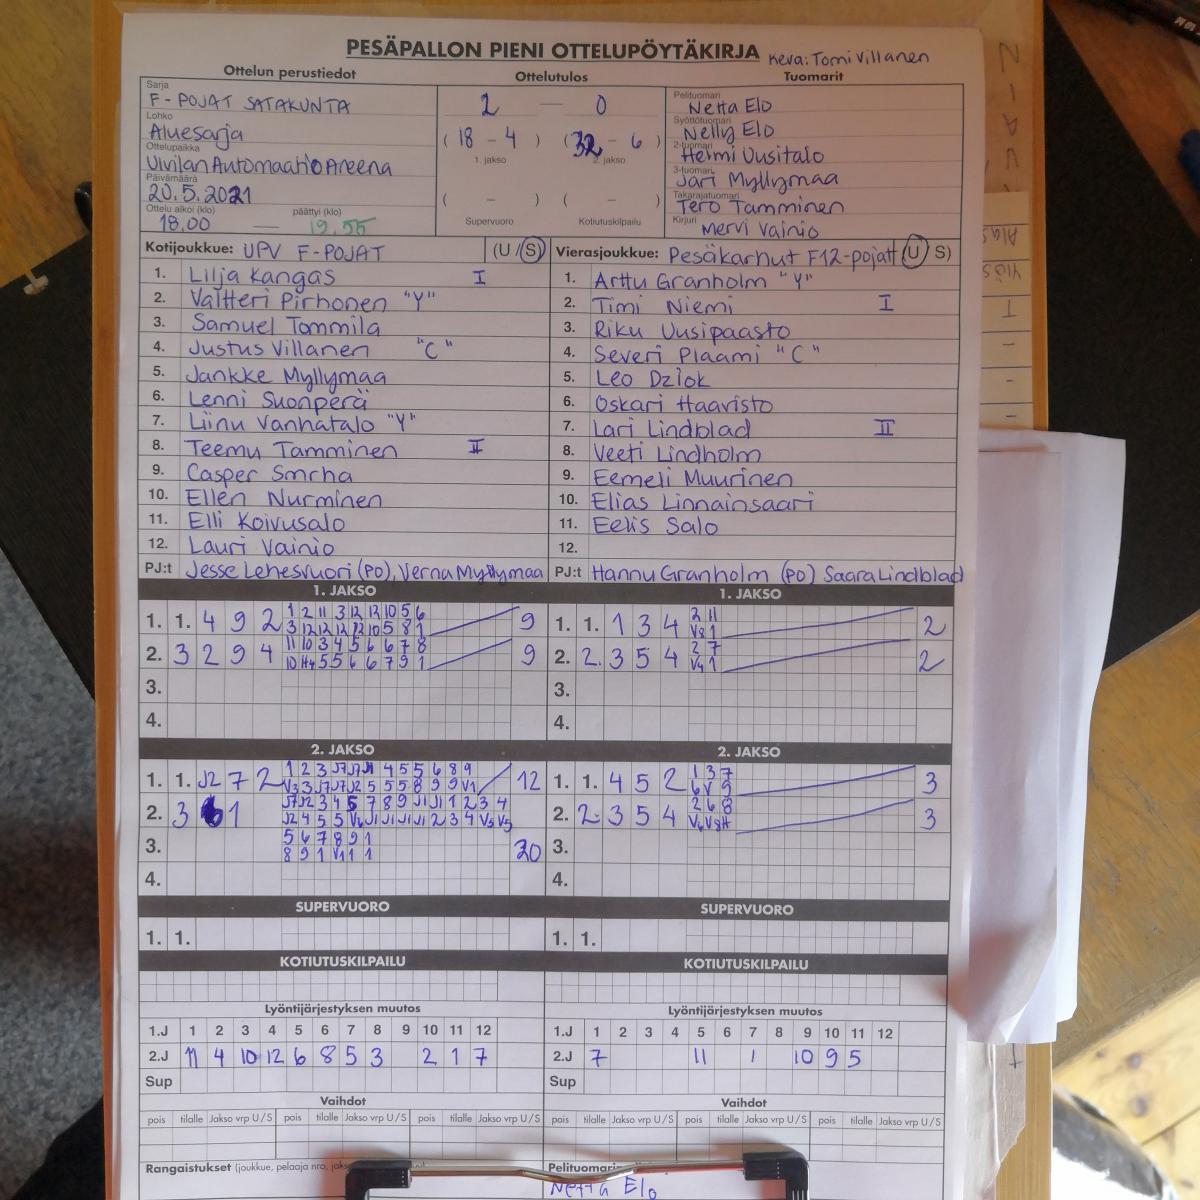 PESÄPALLON PIENI OTTELUPÖYTÄKIRJA Keva: Tomi Villanen
Ottelun perustiedot Ottelutulos Tuomarit
Sarja
F-POJAT SATAKUNTA
Lohko
Aluesarja
Ottelupaikka
Ulvilan Automaatio Areena
Päivämäärä
20.5.2021
Ottelu alkoi (klo) päättyi (klo)
18,00 — 19,55
2 — 0
(18 - 4) (32 - 6)
1. jakso 2. jakso
( - ) ( - )
Supervuoro Kotiutuskilpailu
Pelituomari
Netta Elo
Syöttötuomari
Nelly Elo
2-tuomari
Helmi Uusitalo
3-tuomari
Jari Myllymaa
Takarajatuomari
Tero Tamminen
Kirjuri
Mervi Vainio
Kotijoukkue: UPV F-POJAT (U / S)
1. Lilja Kangas I
2. Valtteri Pirhonen "Y"
3. Samuel Tommila
4. Justus Villanen "C"
5. Jankke Myllymaa
6. Lenni Suonperä
7. Liinu Vanhatalo "Y"
8. Teemu Tamminen II
9. Casper Smrha
10. Ellen Nurminen
11. Elli Koivusalo
12. Lauri Vainio
PJ:t Jesse Lehesvuori (PO), Verna Myllymaa
Vierasjoukkue: Pesäkarhut F12-pojat (U / S)
1. Arttu Granholm "Y"
2. Timi Niemi I
3. Riku Uusipaasto
4. Severi Plaami "C"
5. Leo Dziok
6. Oskari Haavisto
7. Lari Lindblad II
8. Veeti Lindholm
9. Eemeli Muurinen
10. Elias Linnainsaari
11. Eelis Salo
12.
PJ:t Hannu Granholm (PO) Saara Lindblad
1. JAKSO
1. 1. 4 9 2 1 2 11 3 12 12 10 5 6 9
3 12 12 12 12 10 5 8 1
2. 3 2 9 4 11 10 3 4 5 6 6 7 8 9
10 H4 5 5 6 6 7 9 1
3.
4.
1. JAKSO
1. 1. 1 3 4 2 11 2
V8 1
2. 2. 3 5 4 2 7 2
V4 1
3.
4.
2. JAKSO
1. 1. J2 7 2 1 2 3 J7 J7 J1 4 5 5 6 8 9 12
V3 3 J7 J7 J2 5 5 5 8 9 9 V1
2. 3 1 J7 J2 3 4 5 7 8 9 J1 J1 1 2 3 4
J2 4 5 5 V6 J1 J1 J1 J1 2 3 4 V5 V5
3. 5 6 7 8 9 1 20
8 9 1 V1 1 1
4.
2. JAKSO
1. 1. 4 5 2 1 3 7 3
6 V 9
2. 2. 3 5 4 2 6 8 3
V6 V8 H
3.
4.
SUPERVUORO SUPERVUORO
1. 1. 1. 1.
KOTIUTUSKILPAILU KOTIUTUSKILPAILU
Lyöntijärjestyksen muutos Lyöntijärjestyksen muutos
1.J 1 2 3 4 5 6 7 8 9 10 11 12 1.J 1 2 3 4 5 6 7 8 9 10 11 12
2.J 11 4 10 12 6 8 5 3 2 1 7 2.J 7 11 1 10 9 5
Sup Sup
Vaihdot Vaihdot
pois tilalle Jakso vrp U / S pois tilalle Jakso vrp U / S pois tilalle Jakso vrp U / S pois tilalle Jakso vrp U / S
Rangaistukset (joukkue, pelaaja nro,
Netta Elo